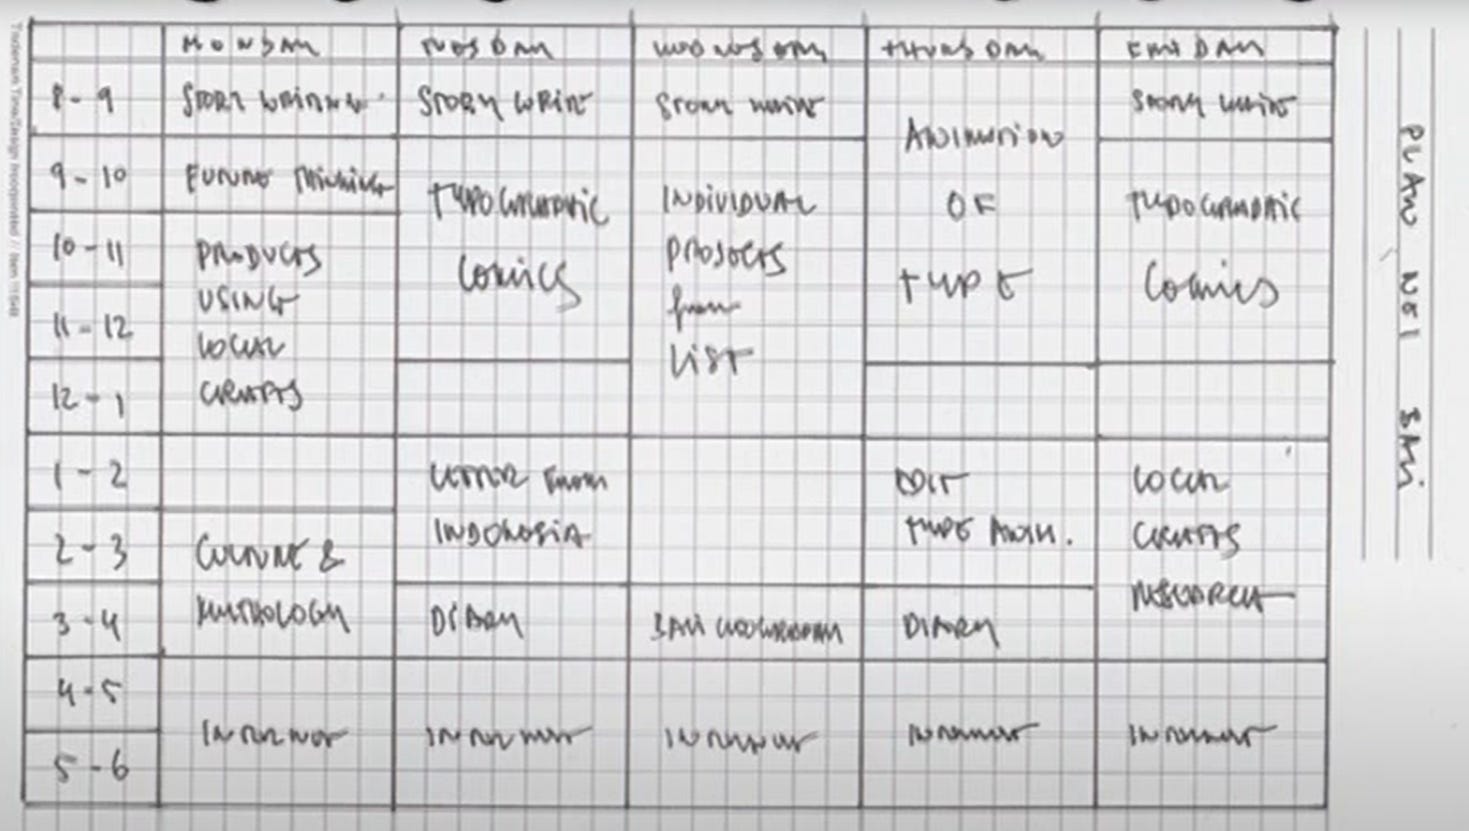 MONDAY TUESDAY WEDNESDAY THURSDAY FRIDAY
8-9 STORY WRITING STORY WRITE STORY WRITE STORY WRITE
ANIMATION
9-10 FUTURE THINKING TYPOGRAPHIC INDIVIDUAL OF TYPOGRAPHIC
10-11 PRODUCTS COMICS PROJECTS TYPE COMICS
USING from
11-12 LOCAL LIST
12-1 CRAFTS
1-2 LETTER FROM EDIT LOCAL
INDONESIA TYPE ANIM. CRAFTS
2-3 CULTURE & RESEARCH
3-4 MYTHOLOGY DIARY BALI DIARY
4-5
INTERNET INTERNET INTERNET INTERNET INTERNET
5-6
PLAN NO1 BALI